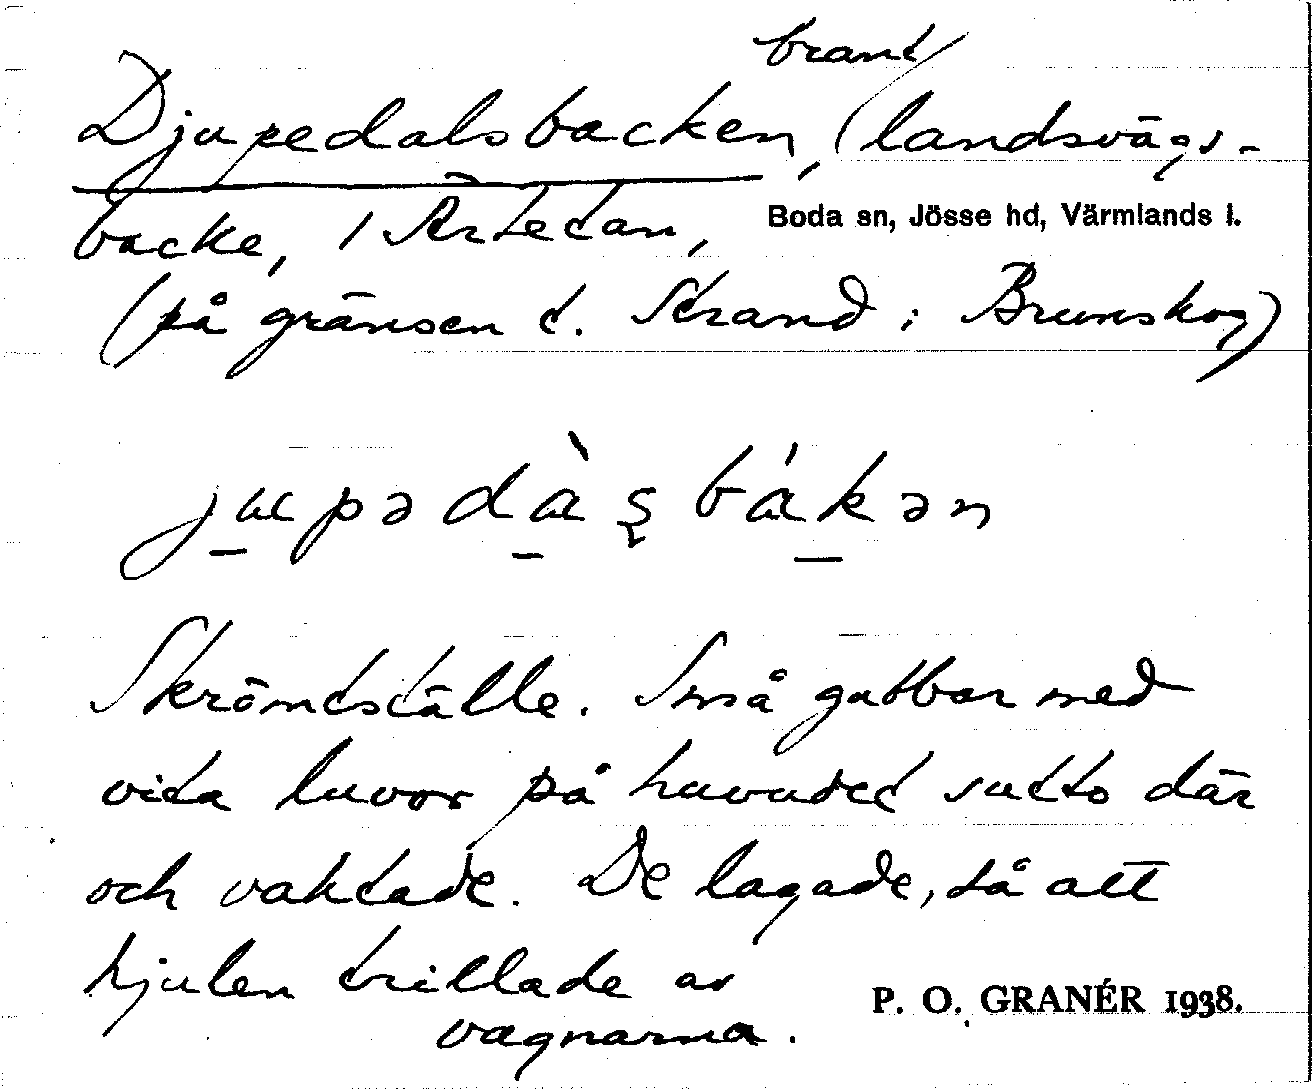 brant
Djupedalsbacken, landsvägs-
backe, i Årtetan,
Boda sn, Jösse hd, Värmlands l.
(på gränsen t. Strand i Brunskog)
jupədàṣbákən
Skrömtställe. Små gubbar med
vita luvor på huvudet sutto där
och vaktade. De lagade, så att
hjulen trillade av
vagnarna.
P. O. GRANÉR 1938.